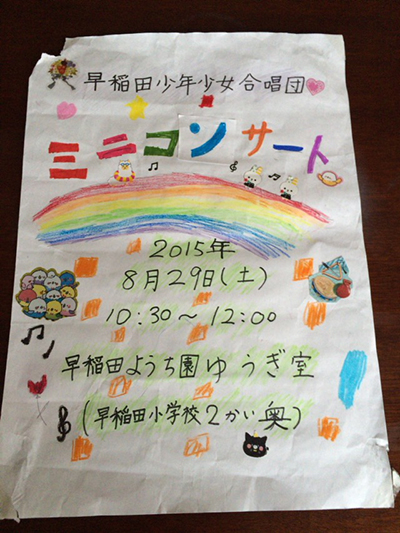 早稲田少年少女合唱団
ミニコンサート
2015年
8月29日(土)
10:30〜12:00
早稲田ようち園ゆうぎ室
(早稲田小学校2かい奥)